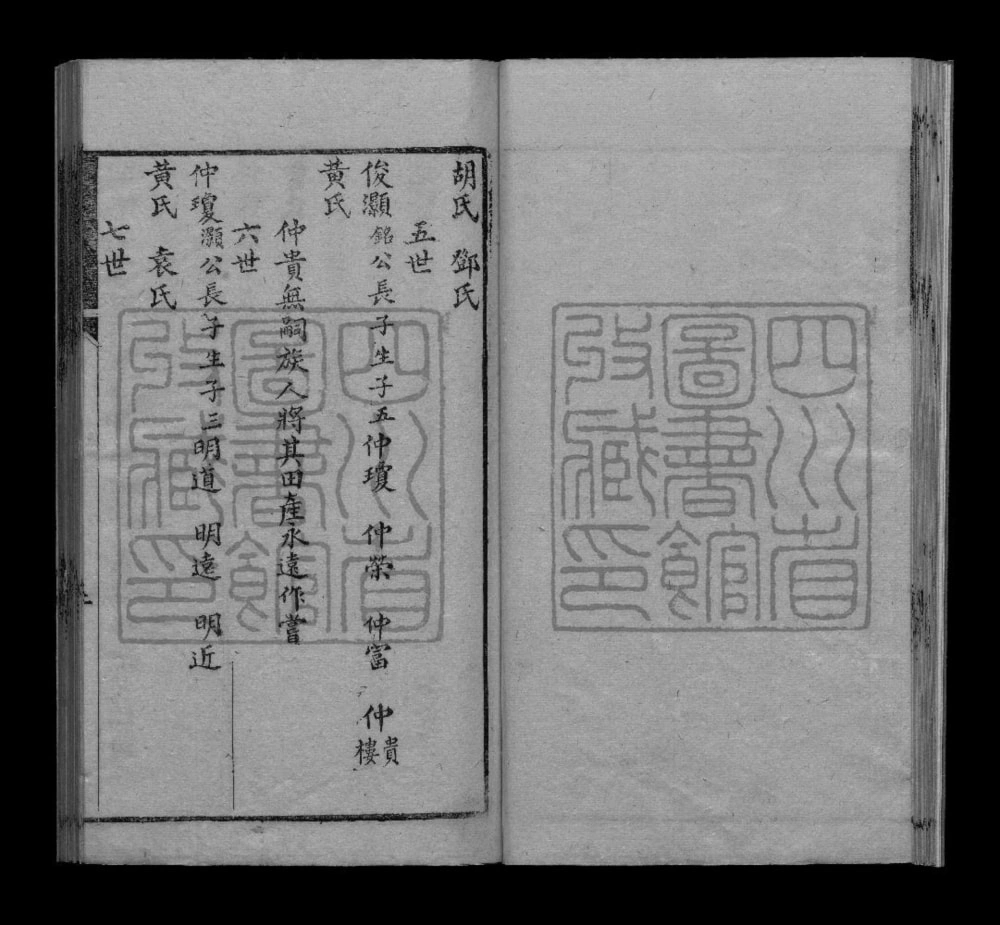 四川省
圖書館
收藏印
胡氏 鄧氏
五世
俊灝銘公長子生子五仲瓊 仲榮 仲富 仲貴樓
黄氏
仲貴無嗣族人將其田產永遠作嘗
六世
仲瓊灝公長子生子三明道 明遠 明近
黄氏 袁氏
七世
四川省
圖書館
收藏印